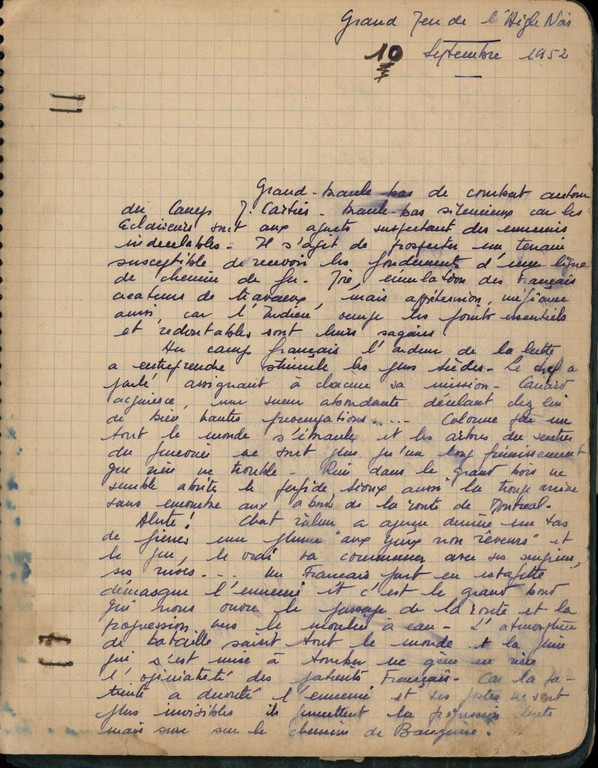 Grand Jeu de l'Aigle Noir
10 Septembre 1952
Grand branle bas de combat autour
du Camp J. Cartier. branle-bas silencieux car les
Eclaireurs sont aux aguets suspectant des ennemis
indécelables. Il s'agit de prospecter un terrain
susceptible de recevoir les fondements d'une ligne
de chemin de fer. Joie, émulation des Français
créateurs de travaux, mais appréhension, méfiance
aussi car l'Indien occupe les points essentiels
et redoutables sont leurs sagaies.
Au camp français l'ardeur de la lutte
a entreprendre stimule les plus tièdes. Le chef a
parlé assignant à chacun sa mission.
acquiesce, une sueur abondante découlant chez lui
de bien hautes préoccupations..... Colonne par un
tout le monde s'ébranle et les arbres du sentier
du ne sont plus qu'un long frémissement
que rien ne trouble. Rien dans le grand bois ne
semble abriter le perfide Sioux aussi la troupe arrive
sans encombre aux abords de la route de Montreal.
Alerte! Chat a aperçu derrière un tas
de pierres une plume "aux yeux non rêveurs" et
le jeu, le vrai va commencer avec ses surprises,
ses ruses... Un Français part en estafette
démasque l'ennemi et c'est le grand bond
qui nous ouvre le passage de la route et la
progression vers le moulin à eau. L'atmosphère
de bataille saisit tout le monde et la pluie
qui s'est mise à tomber ne gêne en rien
l'opiniatreté des patients Français. Car la pa-
tience a dérouté l'ennemi et ses pertes ne sont
plus invisibles ils permettent la progression lente
mais sure sur le chemin de